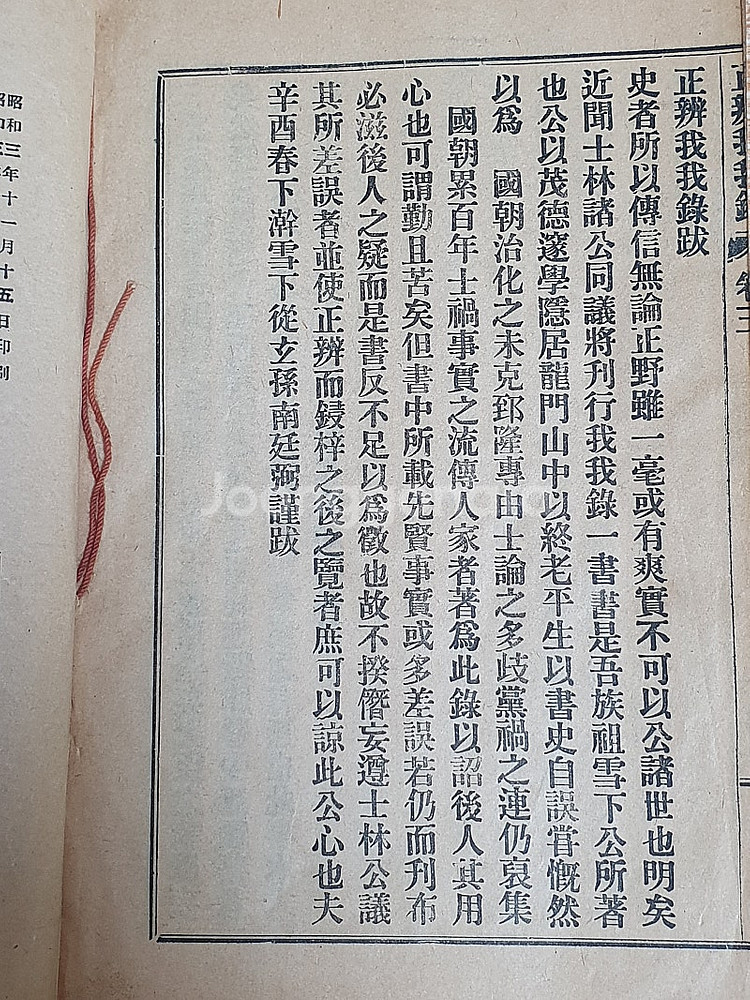 正辨我我錄跋 卷三
正辨我我錄跋
史者所以傳信無論正野雖一毫或有爽實不可以公諸世也明矣
近聞士林諸公同議將刊行我我錄一書書是吾族祖雪下公所著
也公以茂德邃學隱居龍門山中以終老平生以書史自誤甞慨然
以爲 國朝治化之未克郅隆專由士論之多歧黨禍之連仍裒集
國朝累百年士禍事實之流傳人家者著爲此錄以詔後人其用
心也可謂勤且苦矣但書中所載先賢事實或多差誤若仍而刊布
必滋後人之疑而是書反不足以爲徵也故不揆僭妄遵士林公議
其所差誤者並使正辨而鋟梓之後之覽者庶可以諒此公心也夫
辛酉春下澣雪下從玄孫南廷弼謹跋
昭和三年十一月十五日印刷